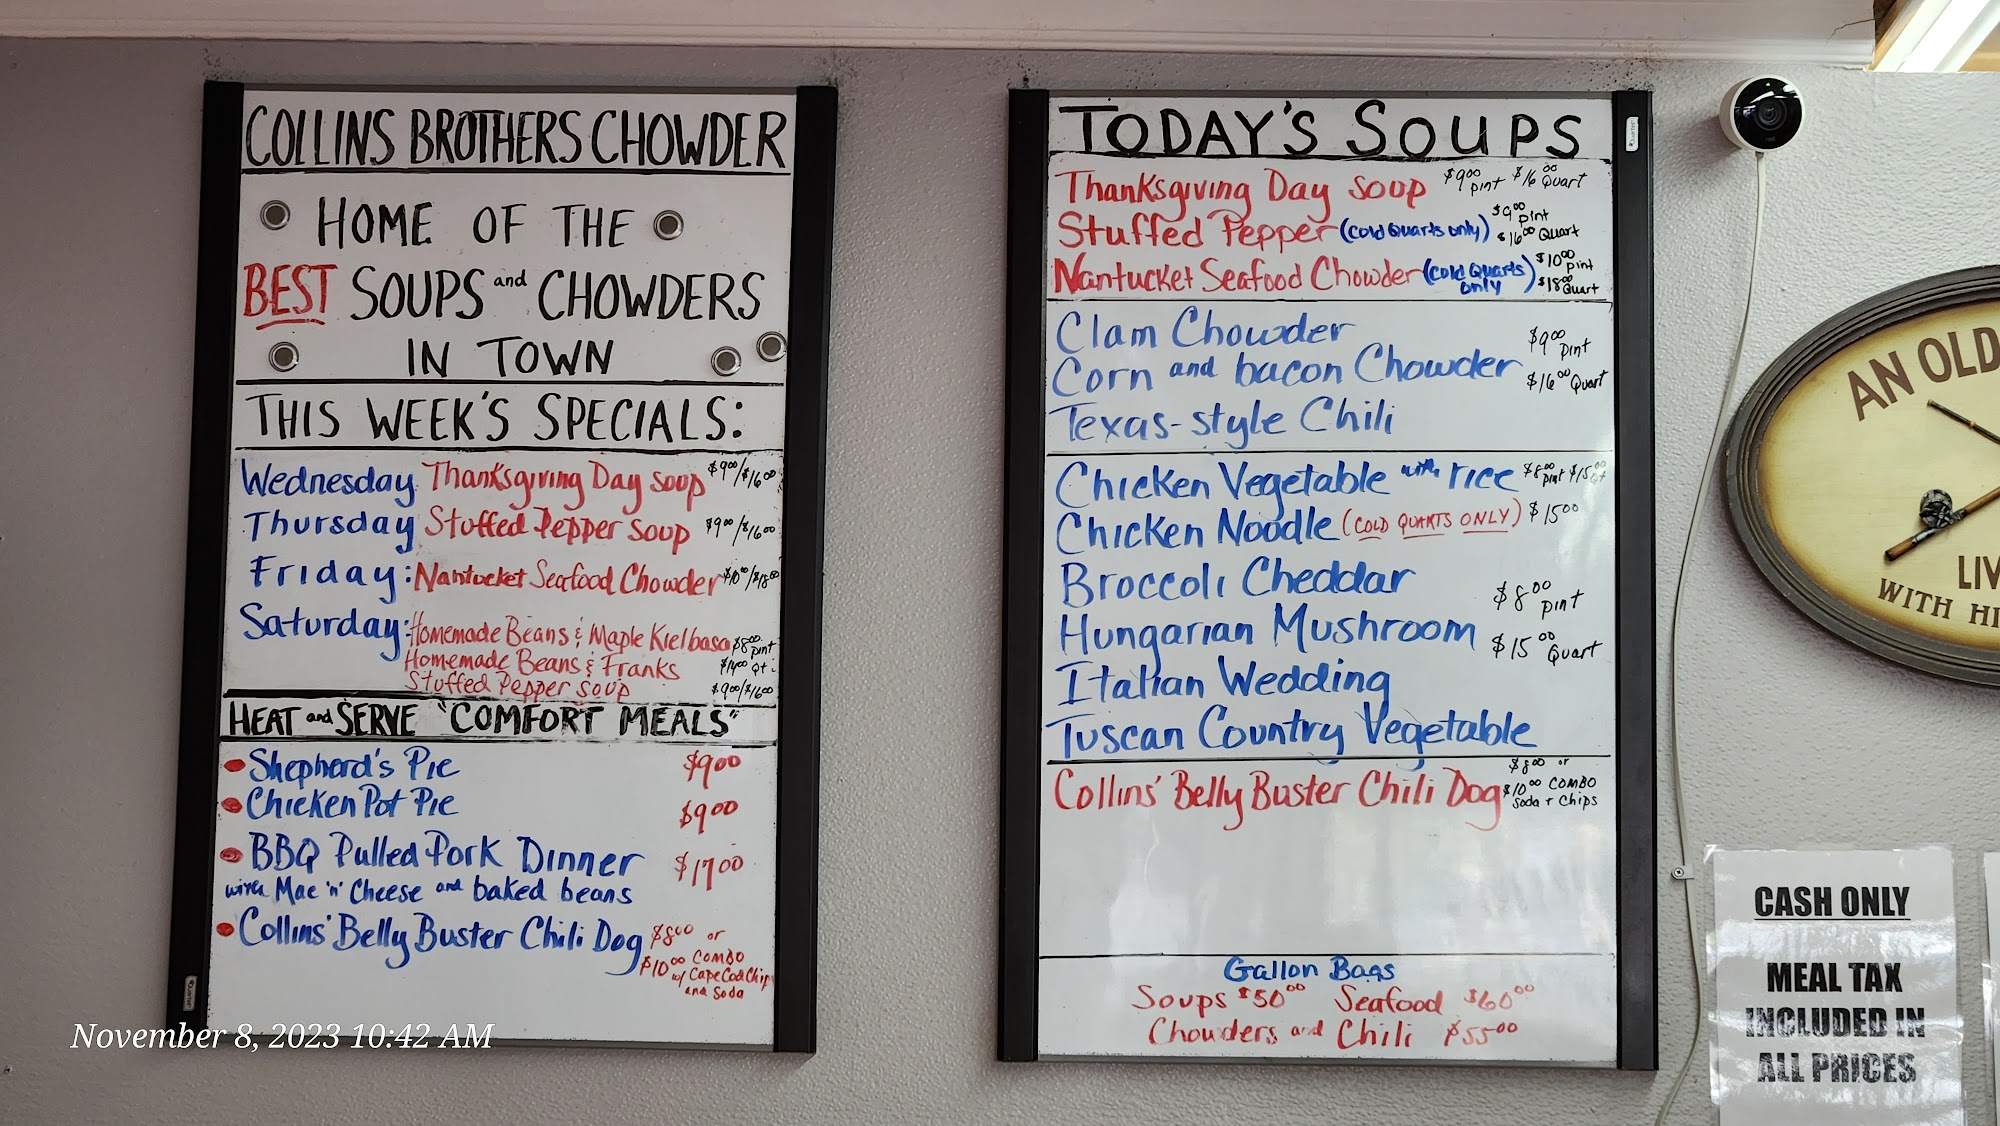 COLLINS BROTHERS CHOWDER
HOME OF THE
BEST SOUPS and CHOWDERS
IN TOWN
THIS WEEK'S SPECIALS:
Wednesday: Thanksgiving Day soup $9.00/$16.00
Thursday Stuffed Pepper soup $9.00/$16.00
Friday: Nantucket Seafood Chowder $10.00/$18.00
Saturday: Homemade Beans & Maple Kielbasa $8.00 pint
Homemade Beans & Franks $14.00 Qt
Stuffed Pepper soup $9.00/$16.00
HEAT and SERVE "COMFORT MEALS"
Shepherd's Pie $9.00
Chicken Pot Pie $9.00
BBQ Pulled Pork Dinner $17.00
with Mac 'n' Cheese and baked beans
Collins' Belly Buster Chili Dog $8.00 or
$10.00 COMBO
w/ Cape Cod Chip
and Soda
November 8, 2023 10:42 AM
TODAY'S SOUPS
Thanksgiving Day soup $9.00 pint $16.00 Quart
Stuffed Pepper (cold Quarts only) $9.00 pint
$16.00 Quart
Nantucket Seafood Chowder (cold Quarts only) $10.00 pint
$18.00 Quart
Clam Chowder
Corn and bacon Chowder
Texas-style Chili
$9.00 pint
$16.00 Quart
Chicken Vegetable with rice $8.00 pint $15.00 Qt
Chicken Noodle (COLD QUARTS ONLY) $15.00
Broccoli Cheddar
Hungarian Mushroom
Italian Wedding
Tuscan Country Vegetable
$8.00 pint
$15.00 Quart
Collins' Belly Buster Chili Dog $8.00 or
$10.00 COMBO
Soda + Chips
Gallon Bags
Soups $50.00 Seafood $60.00
Chowders and Chili $55.00
AN OLD
LIV
WITH HI
CASH ONLY
MEAL TAX
INCLUDED IN
ALL PRICES